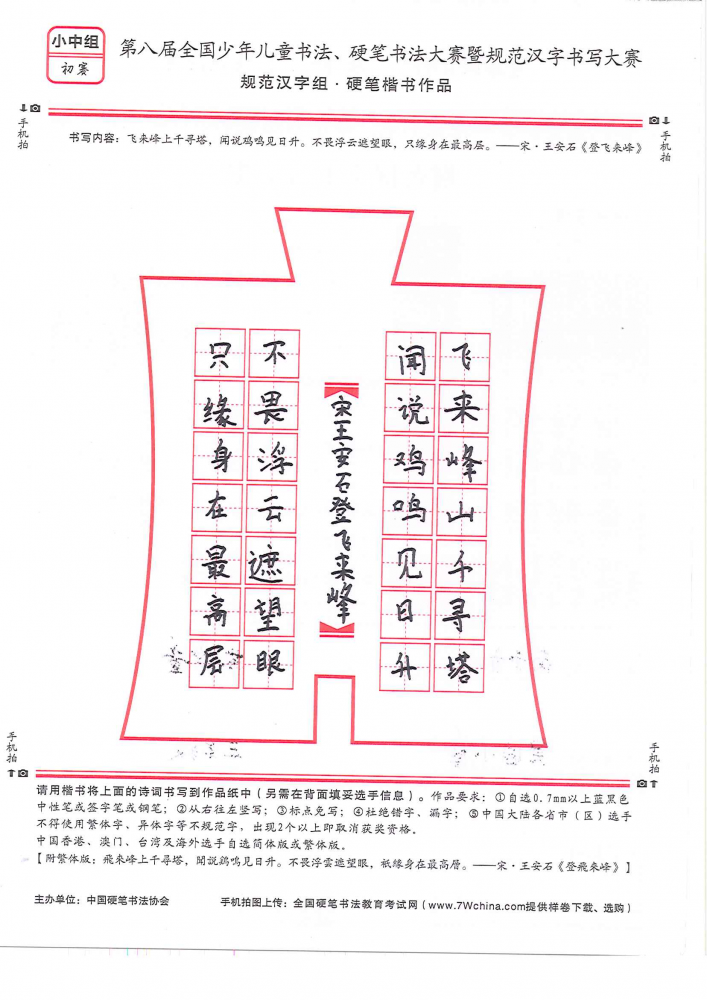 小中组
初赛
第八届全国少年儿童书法、硬笔书法大赛暨规范汉字书写大赛
规范汉字组·硬笔楷书作品
手机拍
手机拍
书写内容：飞来峰上千寻塔，闻说鸡鸣见日升。不畏浮云遮望眼，只缘身在最高层。——宋·王安石《登飞来峰》
飞来峰山千寻塔
闻说鸡鸣见日升
宋王安石登飞来峰
不畏浮云遮望眼
只缘身在最高层
手机拍
手机拍
请用楷书将上面的诗词书写到作品纸中（另需在背面填妥选手信息）。作品要求：①自选0.7mm以上蓝黑色
中性笔或签字笔或钢笔；②从右往左竖写；③标点免写；④杜绝错字、漏字；⑤中国大陆各省市（区）选手
不得使用繁体字、异体字等不规范字，出现2个以上即取消获奖资格。
中国香港、澳门、台湾及海外选手自选简体版或繁体版。
【附繁体版：飛來峰上千尋塔，聞説鷄鳴見日升。不畏浮雲遮望眼，祇緣身在最高層。——宋·王安石《登飛來峰》】
主办单位：中国硬笔书法协会
手机拍图上传：全国硬笔书法教育考试网（www.7Wchina.com提供样卷下载、选购）